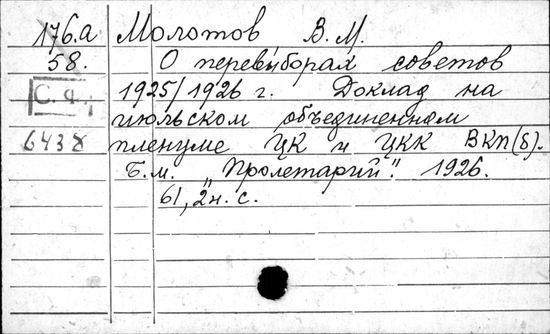 176.а Молотов В.М.
58. О перевыборах советов
С.Ф. 1925/1926 г. Доклад на
июльском объединенном
6438 пленуме ЦК и ЦКК ВКП(б).
Б.м. „Пролетарий“. 1926.
61, 2н. с.